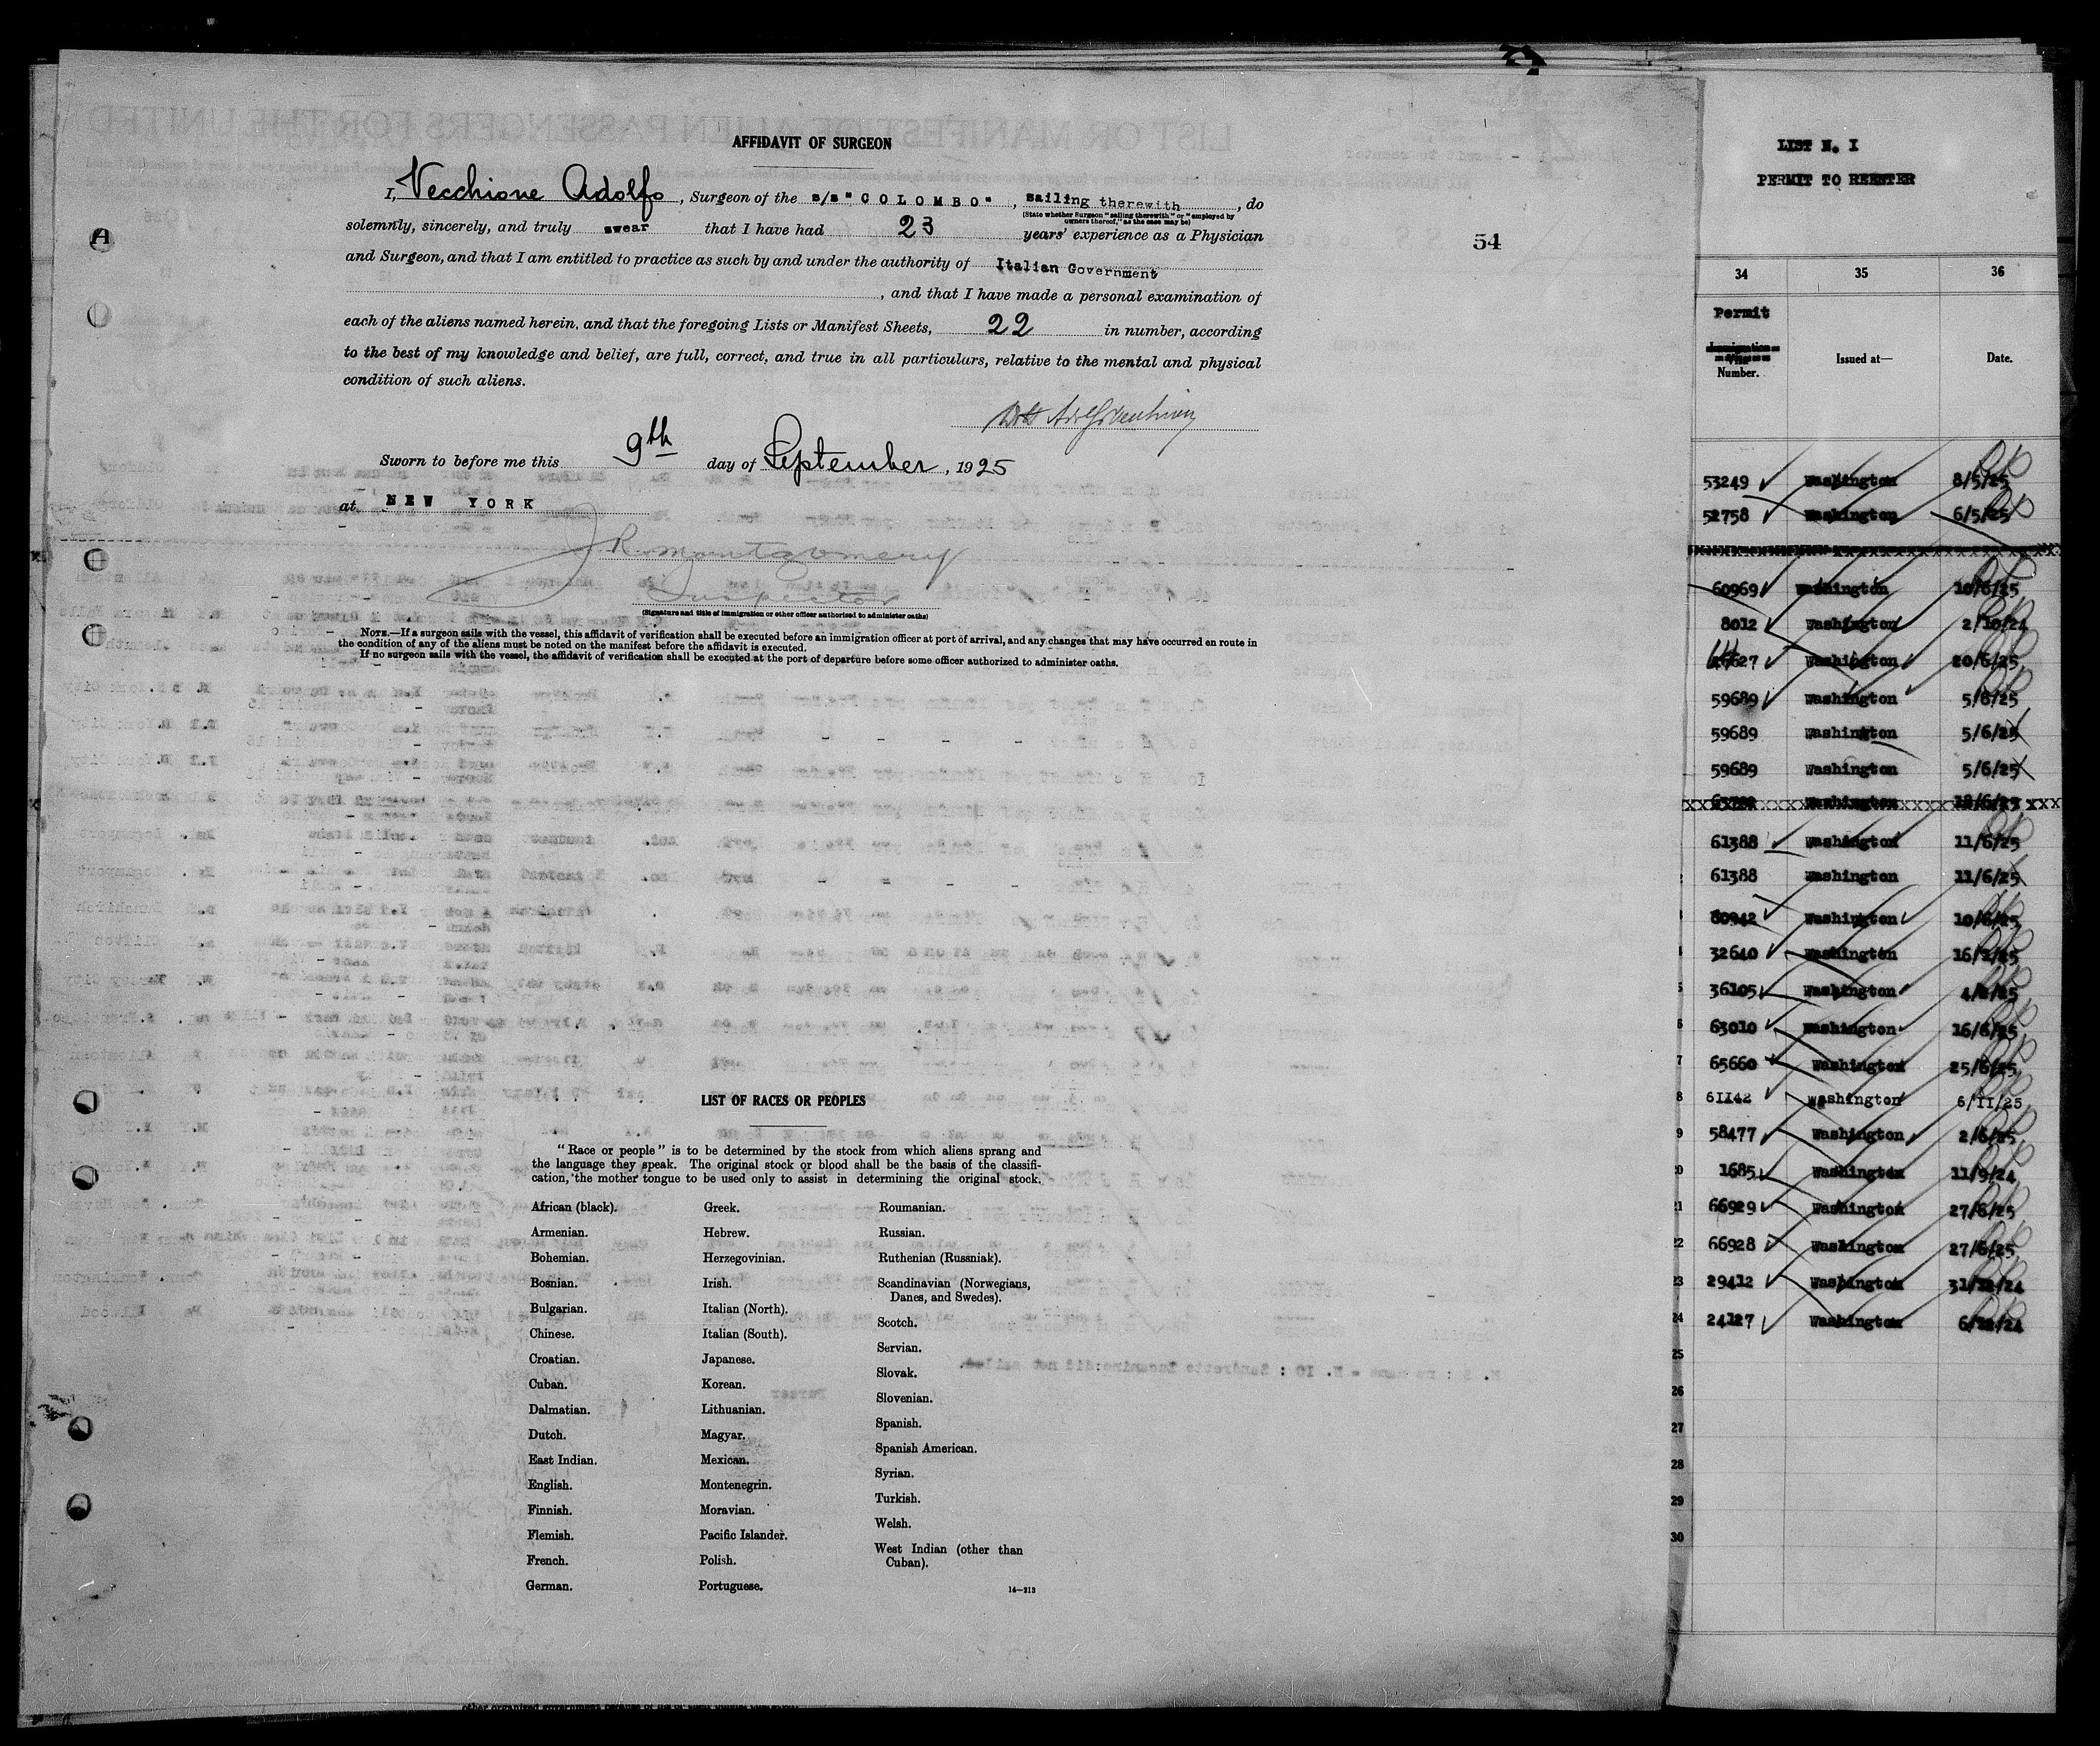 AFFIDAVIT OF SURGEON
I, Vecchione Adolfo, Surgeon of the s/s "COLOMBO", sailing therewith, do
(State whether Surgeon "sailing therewith" or "employed by
owners thereof," as the case may be)
solemnly, sincerely, and truly swear that I have had 23 years' experience as a Physician
and Surgeon, and that I am entitled to practice as such by and under the authority of Italian Government
, and that I have made a personal examination of
each of the aliens named herein, and that the foregoing Lists or Manifest Sheets, 22 in number, according
to the best of my knowledge and belief, are full, correct, and true in all particulars, relative to the mental and physical
condition of such aliens.
Sworn to before me this 9th day of September, 1925
at NEW YORK
J R Montgomery
Inspector
(Signature and title of immigration or other officer authorized to administer oaths)
NOTE.—If a surgeon sails with the vessel, this affidavit of verification shall be executed before an immigration officer at port of arrival, and any changes that may have occurred en route in
the condition of any of the aliens must be noted on the manifest before the affidavit is executed.
If no surgeon sails with the vessel, the affidavit of verification shall be executed at the port of departure before some officer authorized to administer oaths.
54
LIST OF RACES OR PEOPLES
"Race or people" is to be determined by the stock from which aliens sprang and
the language they speak. The original stock or blood shall be the basis of the classifi-
cation, the mother tongue to be used only to assist in determining the original stock.
African (black).
Armenian.
Bohemian.
Bosnian.
Bulgarian.
Chinese.
Croatian.
Cuban.
Dalmatian.
Dutch.
East Indian.
English.
Finnish.
Flemish.
French.
German.
Greek.
Hebrew.
Herzegovinian.
Irish.
Italian (North).
Italian (South).
Japanese.
Korean.
Lithuanian.
Magyar.
Mexican.
Montenegrin.
Moravian.
Pacific Islander.
Polish.
Portuguese.
Roumanian.
Russian.
Ruthenian (Russniak).
Scandinavian (Norwegians,
Danes, and Swedes).
Scotch.
Servian.
Slovak.
Slovenian.
Spanish.
Spanish American.
Syrian.
Turkish.
Welsh.
West Indian (other than
Cuban).
14—213
LIST N. I
PERMIT TO REENTER
34 35 36
Permit
Number. Issued at— Date.
53249 Washington 8/5/25
52758 Washington 6/5/25
60969 Washington 10/6/25
8012 Washington 2/10/24
627 Washington 20/6/25
59689 Washington 5/6/25
59689 Washington 5/6/25
59689 Washington 5/6/25
Washington 18/6/25
61388 Washington 11/6/25
61388 Washington 11/6/25
80942 Washington 10/6/25
32640 Washington 16/1/25
36105 Washington 4/2/25
63010 Washington 16/6/25
7 65660 Washington 25/6/25
8 61142 Washington 6/11/25
9 58477 Washington 2/6/25
1685 Washington 11/9/24
21 66929 Washington 27/6/25
22 66928 Washington 27/6/25
23 29412 Washington 31/12/24
24 24127 Washington 6/12/24
25
26
27
28
29
30